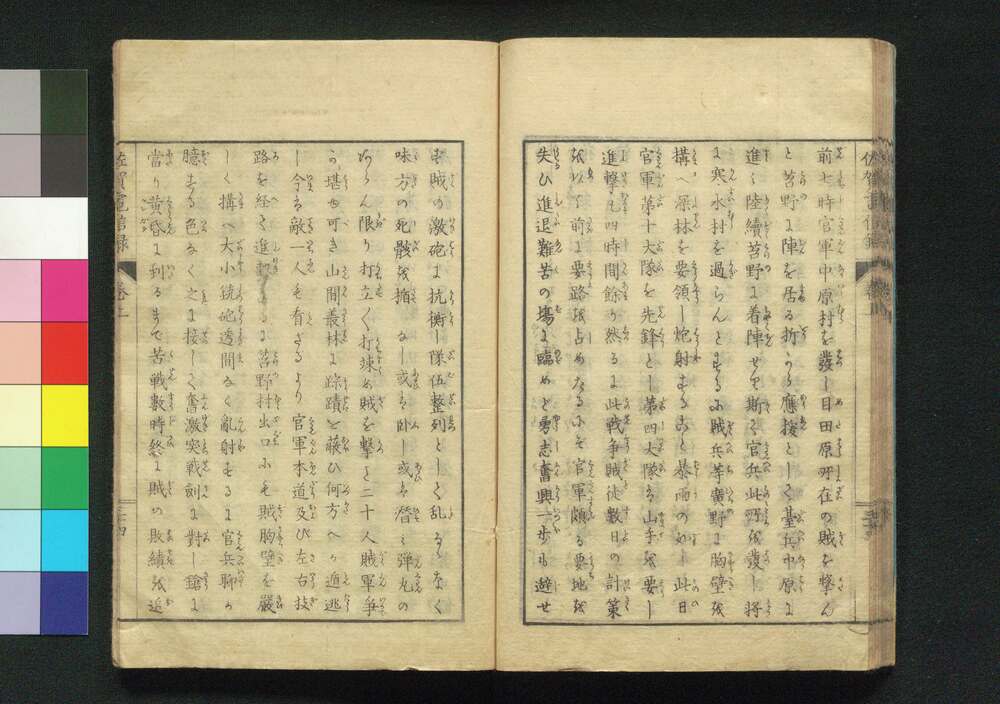 前七時官軍中原村を發し目田原所在の賊を撃ん
と苔野に陣を居る折から應援として臺兵中原に
進み陸續苔野に着陣せり斯て官兵此所を發し將
に寒水村を過らんとするに賊兵等廣野に胸壁を
構へ深林を要領し炮射することと暴雨の如し此日
官軍第十大隊を先鋒とし第四大隊は山手を要し
進撃凡四時間餘り然るに此戰争賊徒數日の計策
を以て前に要路を占めたるにぞ官軍頗る要地を
失ひ進退難苦の場に臨めど勇志奮興一歩も避せ
ず賊の激砲に抗衡し隊伍整列として乱るゝなく
味方の死骸を楯となし或は臥し或は潛み弾丸の
あらん限り打立く打竦め賊を撃こと二十人賊軍争
か堪ゆ可き山間叢林に踪蹟を蔵ひ何方へか遁逃
し今は敵一人も看ざるより官軍本道及び左右枝
路を経て進むに苔野村出口にも賊胸壁を嚴
しく構へ大小銃砲透間なく亂射するに官兵聊か
臆する色なく之に接して奮激突戰剣に對し鎗に
當り黄昏に到るまで苦戰數時終に賊の敗績を追
佐賀電信録 巻上